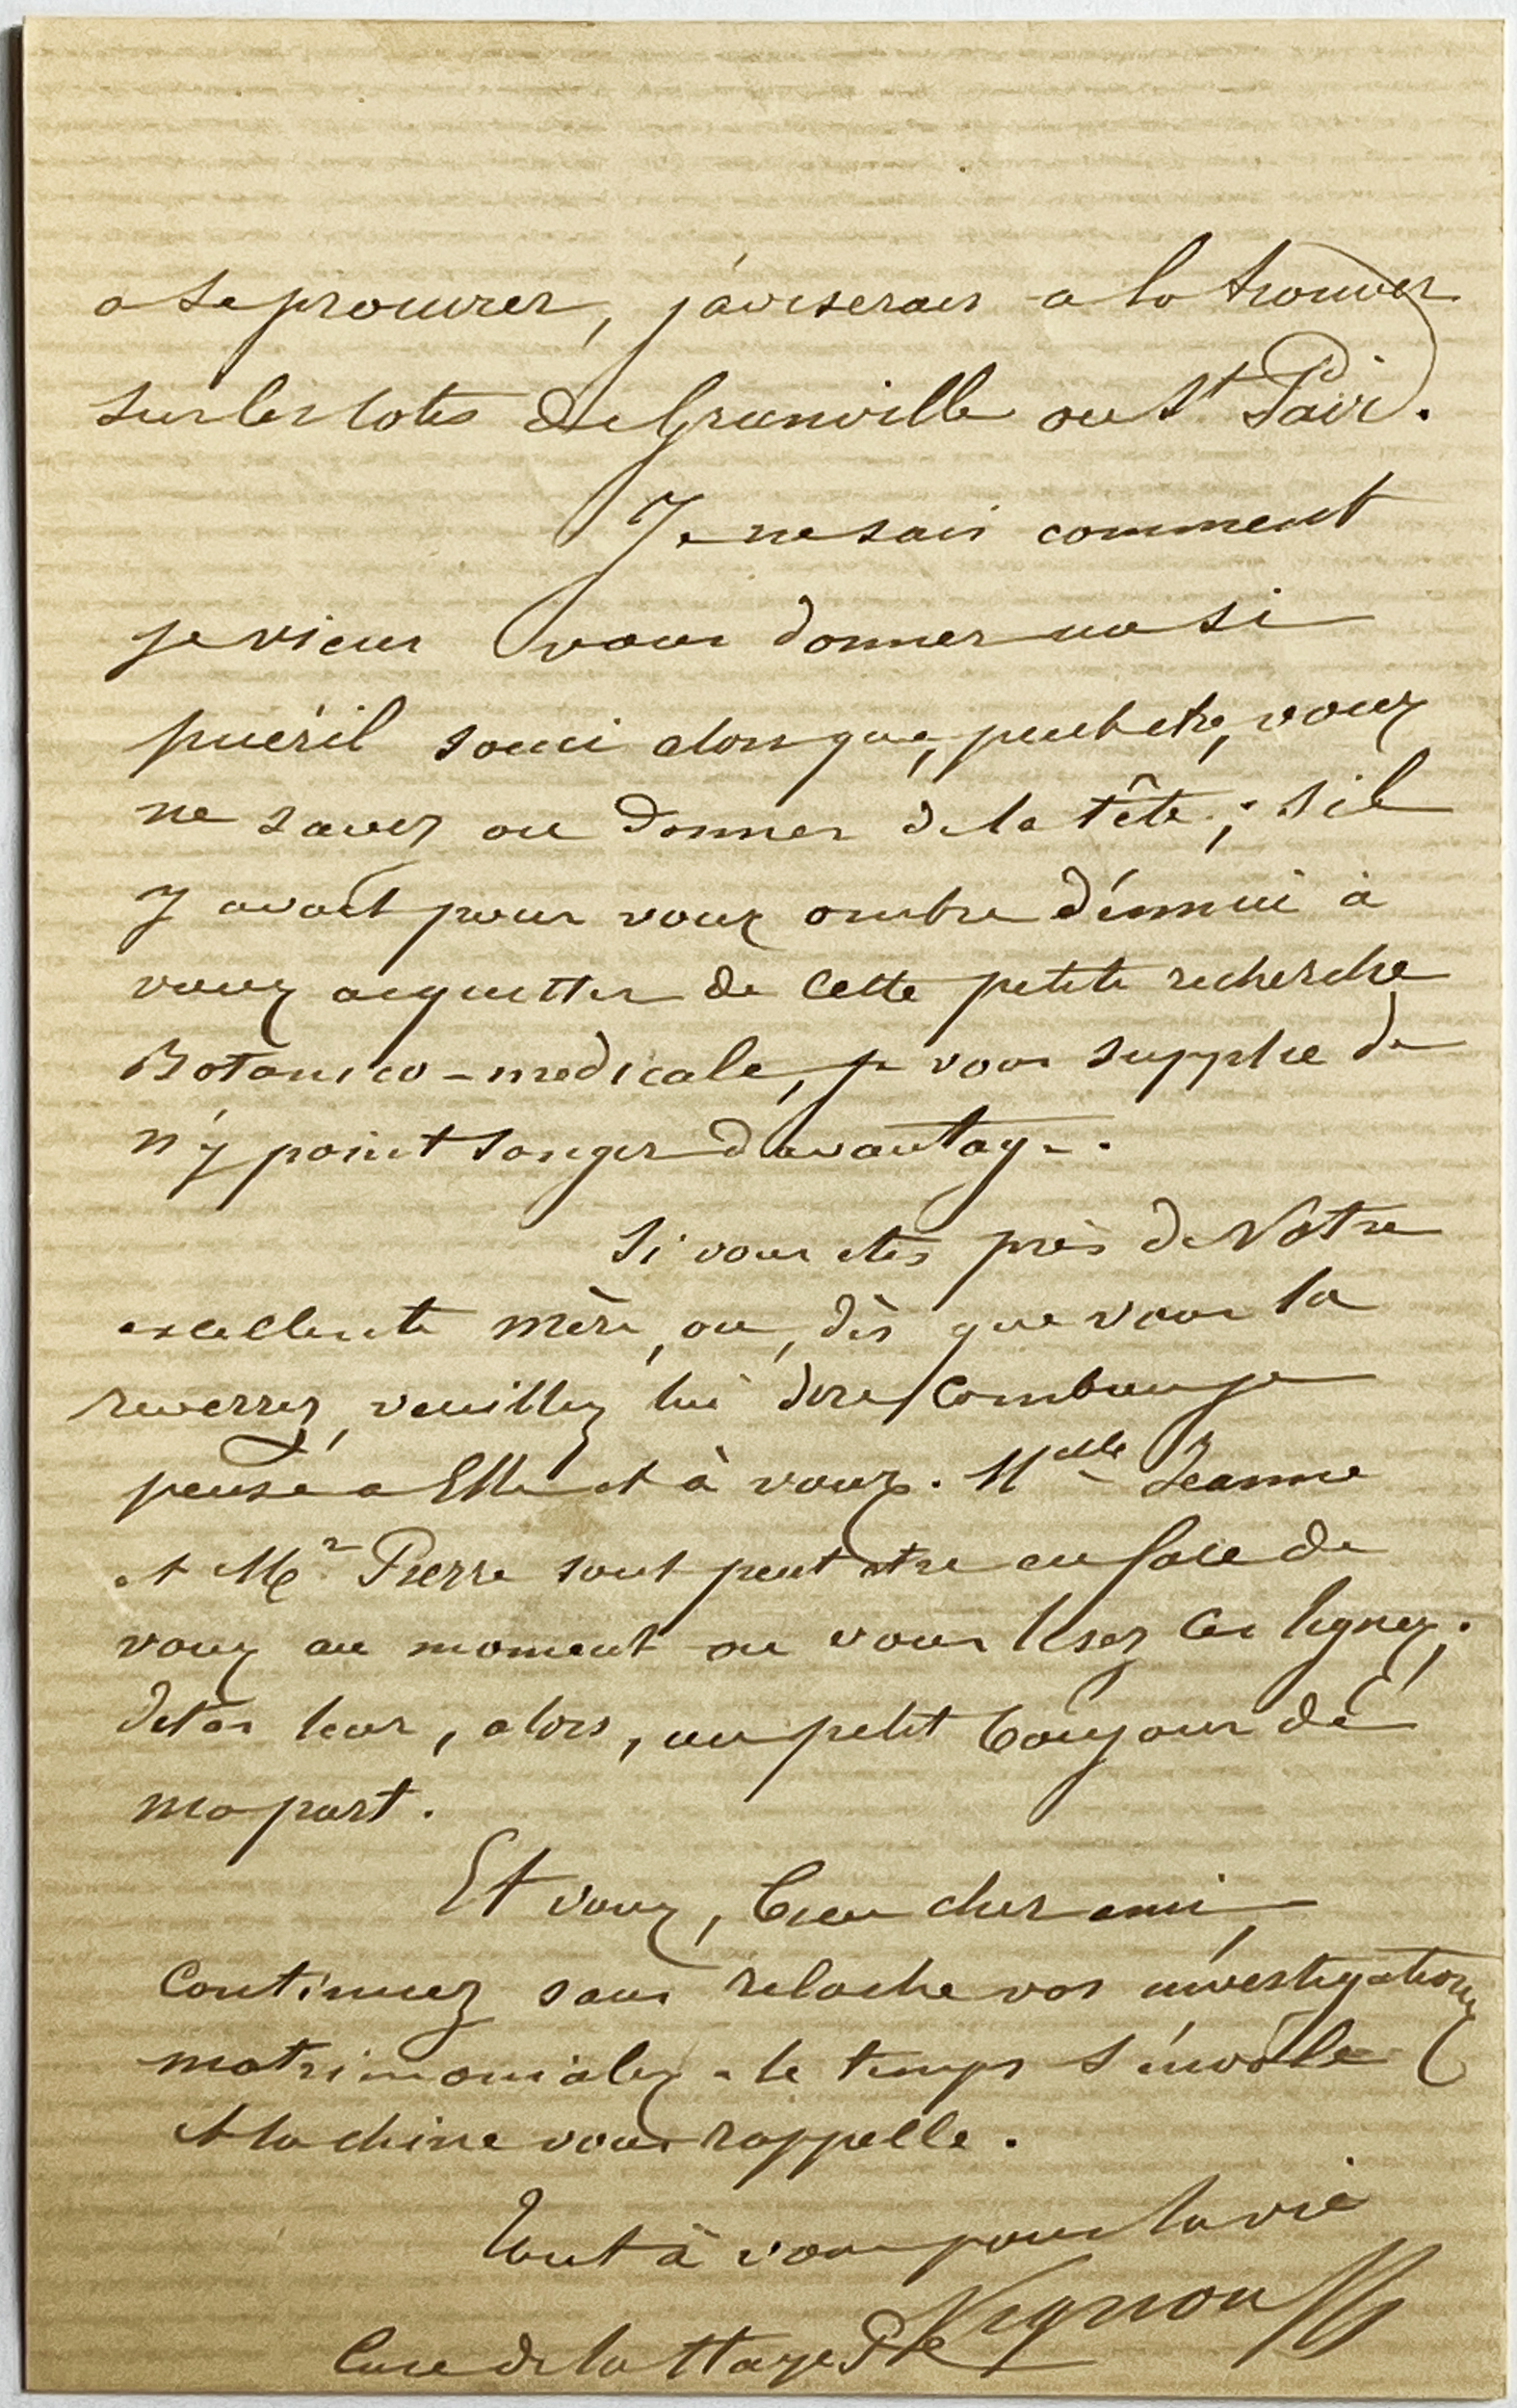 a se procurer, j'aviserais a la trouver
sur les cotes de Granville ou St Pair.
Je ne sais comment
je viens vous donner un si
puéril souci alors que, peut etre, vous
ne savez ou donner de la tête ; s'il
y avait pour vous ombre d'ennui à
vous acquitter de cette petite recherche
Botanico-medicale, je vous supplie de
n'y point songer davantage.
Si vous etes près de Votre
excellente mère, ou, dès que vous la
reverrez, veuillez lui dire combien je
pense a Elle et à vous. Melle Jeanne
et Mr Pierre sont peut etre en face de
vous au moment ou vous lisez ces lignes ;
dites leur, alors, un petit bonjour de
ma part.
Et vous, bien cher ami,
continuez sans relache vos investigations
matrimoniales - le temps s'envole
et la chine vous rappelle.
Tout à vous pour la vie
Vignon
Cure de la